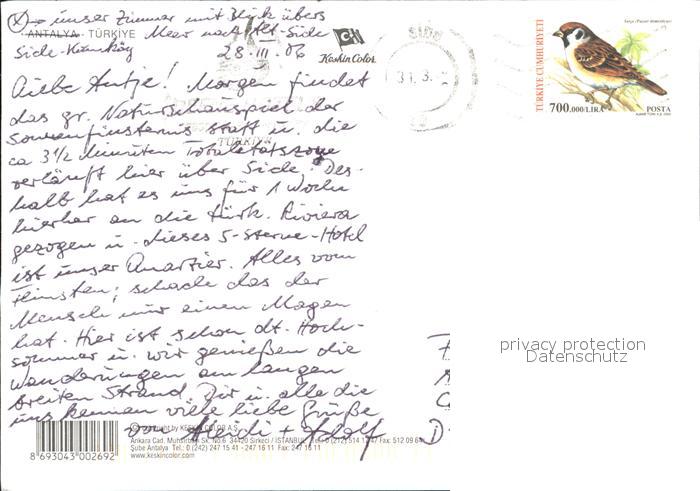 (X) → unser Zimmer mit Blick übers
ANTALYA - TÜRKIYE Meer nach Alt-Side
Side-Kumköy 28.III.06
Keskin Color
SIDE
31.3.
Serçe (Passer domesticus)
TÜRKİYE CUMHURİYETİ
700.000/LIRA POSTA
Liebe Antje! Morgen findet
das gr. Naturschauspiel der
Sonnenfinsternis statt u. die
ca 3½ Minuten Totalitätszone
verläuft hier über Side. Des-
halb hat es uns für 1 Woche
hierher an die türk. Riviera
gezogen u. dieses 5-Sterne-Hotel
ist unser Quartier. Alles vom
Feinsten; schade das der
Mensch nur einen Magen
hat. Hier ist schon dt. Hoch-
sommer u. wir genießen die
Wanderungen am langen
breiten Strand. Dir u. alle die
uns kennen viele liebe Grüße
von Heidi + Adolf
TÜRKİYE
privacy protection
Datenschutz
Copyright by KESKIN COLOR A.Ş.
Ankara Cad. Muhsinbaşı Sk. No.6 34420 Sirkeci / İSTANBUL Tel: 0 (212) 514 11 47 Fax: 512 09 6
Şube Antalya Tel.: 0 (242) 247 15 41 - 247 16 11 Fax: 247 16 11
www.keskincolor.com
8 693043 002692
D